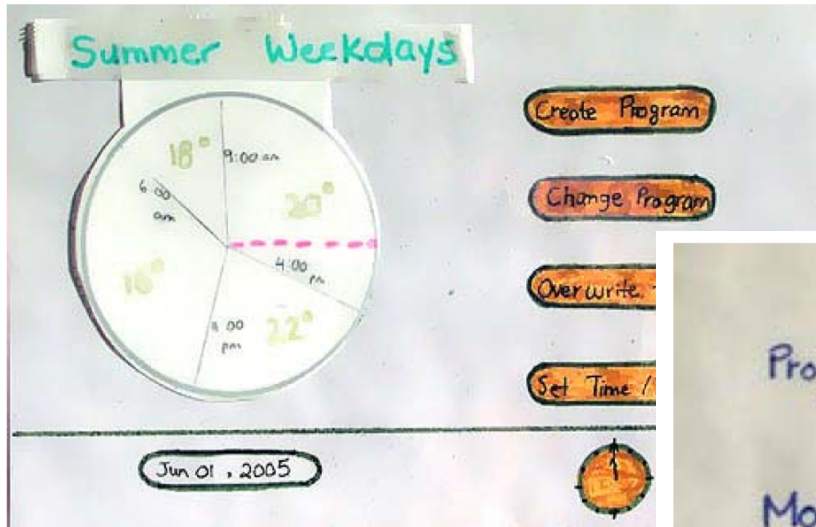 Summer Weekdays
18°
9:00 am
6:00
am
20°
4:00
pm
16°
22°
:00
pm
Create Program
Change Program
Overwrite
Set Time /
Jun 01, 2005
Pro
Mo